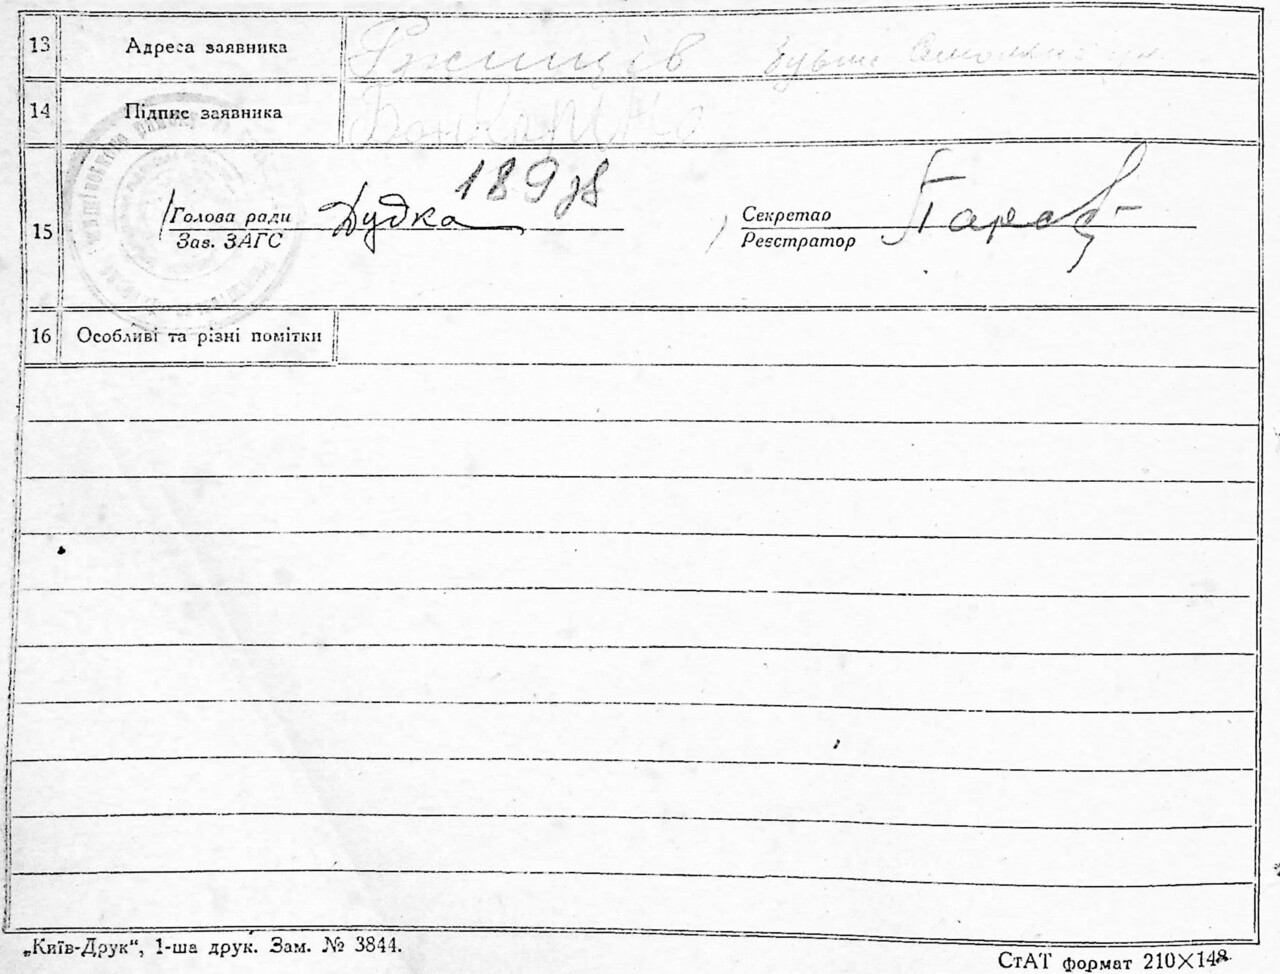 13 Адреса заявника Ржищів
14 Підпис заявника
15 Голова ради Дудка 189
Зав. ЗАГС
Секретар
Реєстратор
16 Особливі та різні помітки
„Київ-Друк“, 1-ша друк. Зам. № 3844.
СтАТ формат 210×148.